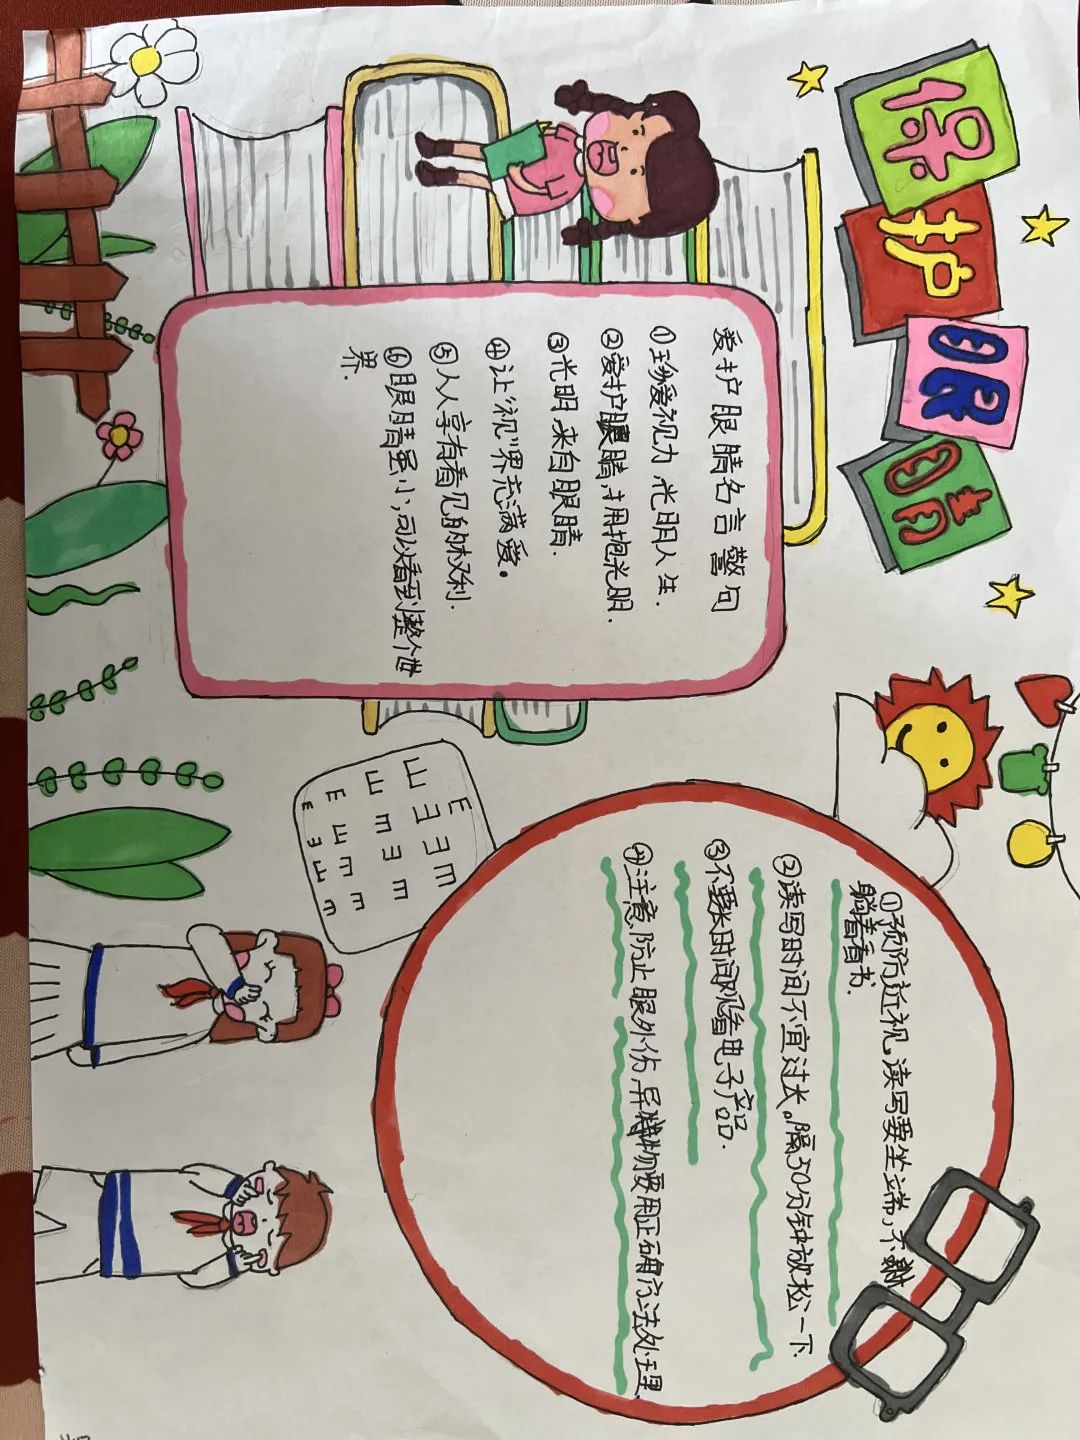 保护眼睛
爱护眼睛名言警句
①珍爱视力光明人生.
②爱护眼睛,拥抱光明.
③光明,来自眼睛.
④让“视”界充满爱。
⑤人人享有看见的权利.
⑥眼睛虽小,可以看到整个世
界.
E E E E
E E E
E E E E
E E E E
①预防近视,读写要坐端,不
躺着看书.
②读写时间不宜过长。隔30分钟放松一下.
③不要长时间观看电子产品.
④注意防止眼外伤,异物要用正确方法处理.